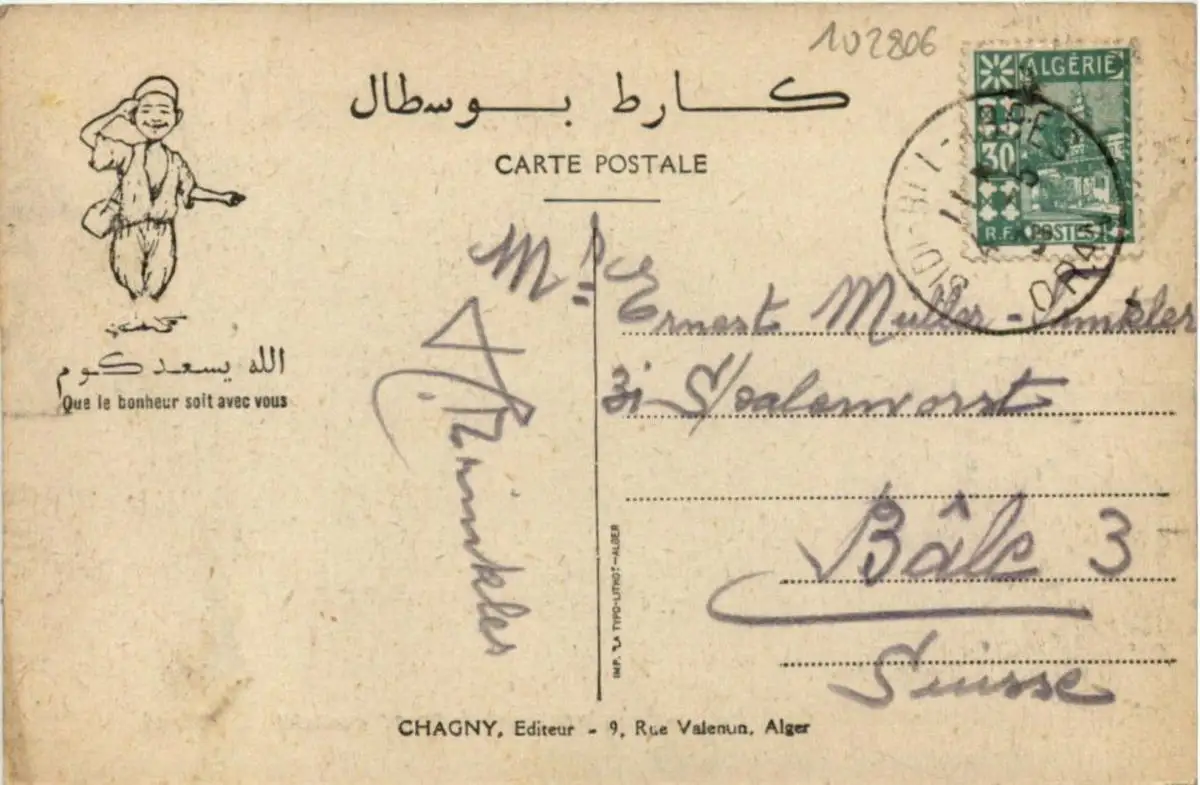 102806
كارط بوسطال
CARTE POSTALE
ALGÉRIE
30
R.F. POSTES
SIDI-BEL-ABBES
ORAN
الله يسعدكوم
Que le bonheur soit avec vous
Mr Ernest Muller-Winkler
31
Bâle 3
Suisse
Winkler
IMP. "LA TYPO-LITHO"-ALGER
CHAGNY, Editeur - 9, Rue Valentin, Alger